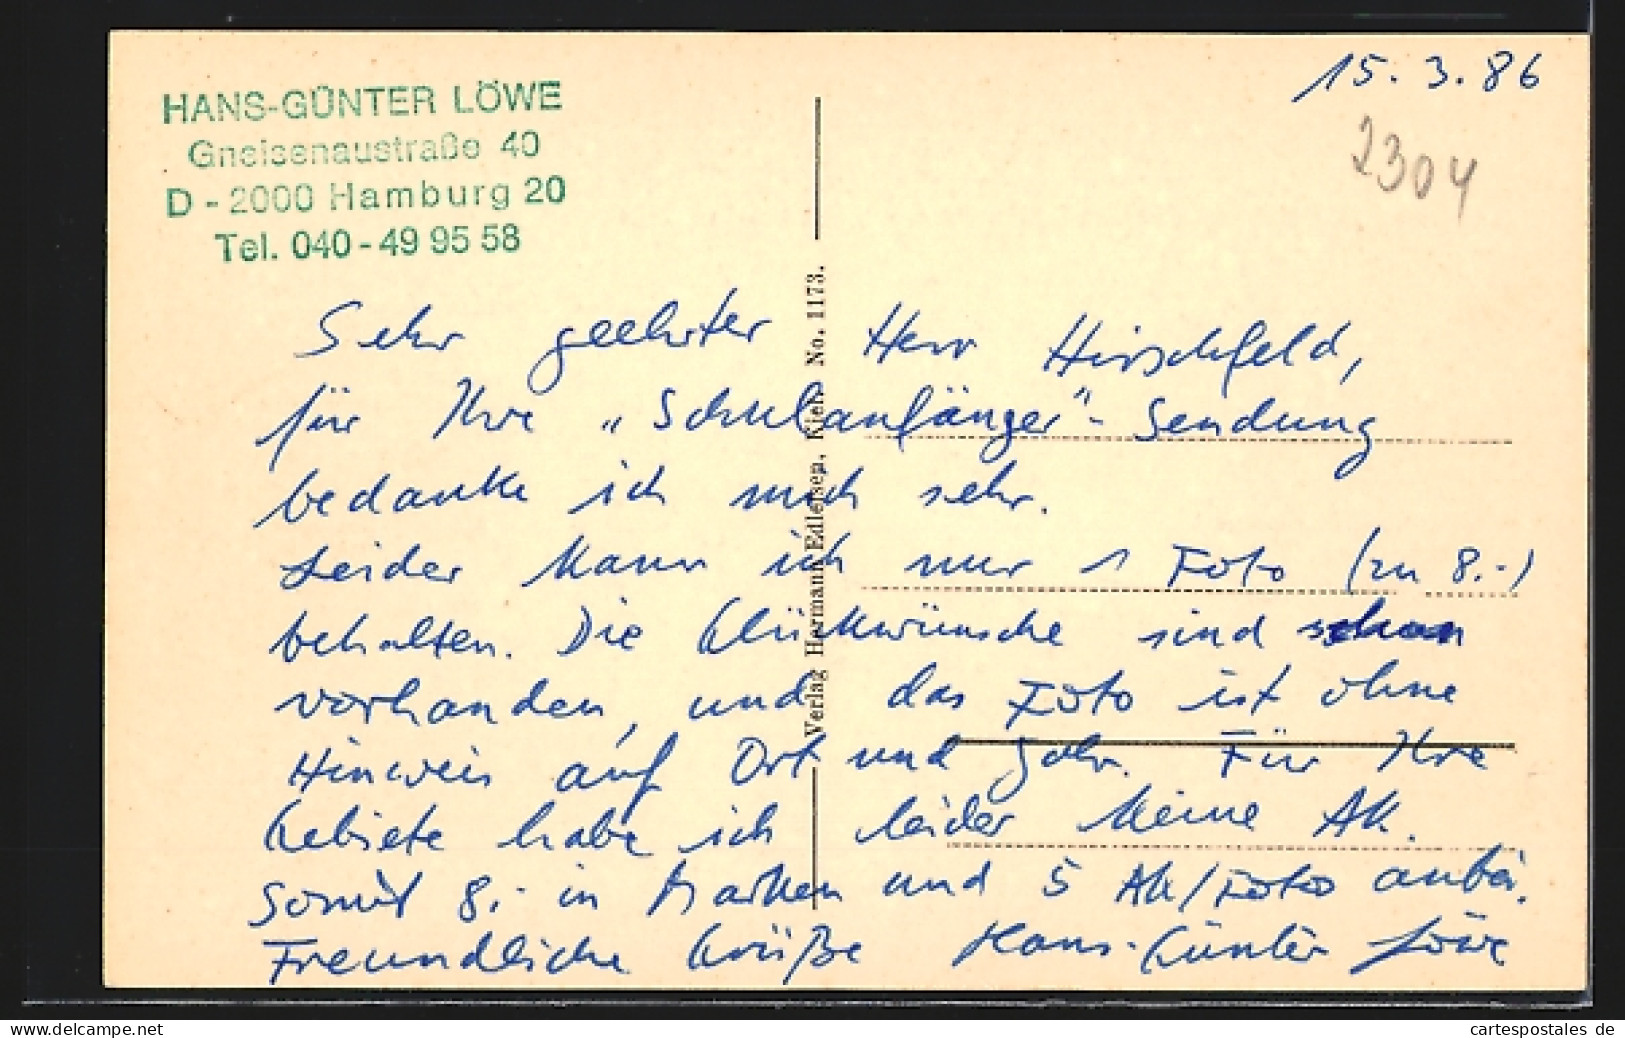 HANS-GÜNTER LÖWE
Gneisenaustraße 40
D - 2000 Hamburg 20
Tel. 040 - 49 95 58
15. 3. 86
2304
Sehr geehrter Herr Hirschfeld,
für Ihre „Schulanfänger"- Sendung
bedanke ich mich sehr.
Leider kann ich nur 1 Foto (zu 8.-)
behalten. Die Glückwünsche sind schon
vorhanden, und das Foto ist ohne
Hinweis auf Ort und Jahr. Für Ihre
Gebiete habe ich leider keine AK.
Somit 8.- in Marken und 5 AK/Foto anbei.
Freundliche Grüße Hans-Günter Löwe
Verlag Hermann Edlefsen, Kiel. No. 1173.
www.delcampe.net
cartespostales_de